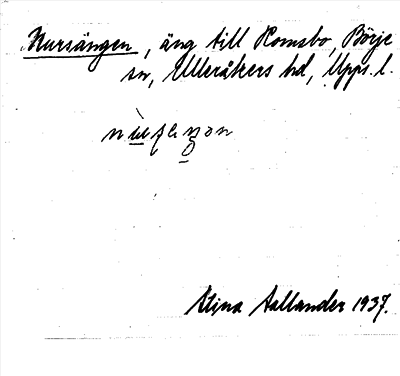 Nursängen, äng till Romsbo, Börje
sn, Ulleråkers hd, Upps. l.
Stina Aallander 1937.